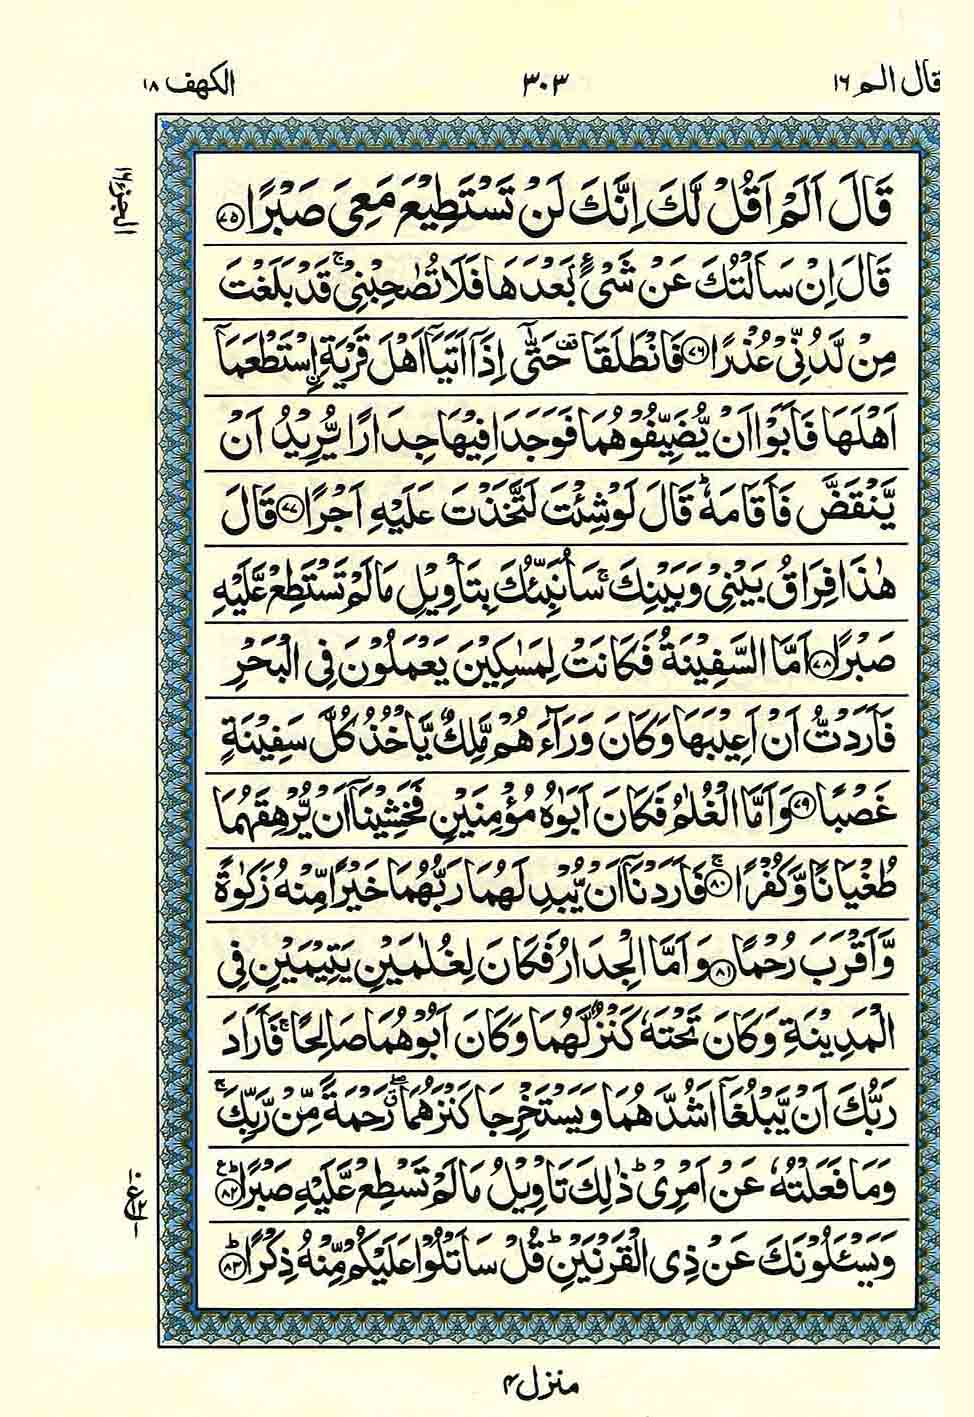 قال الم ١٦
٣٠٣
الكهف ١٨
الجزء ١٦
قَالَ اَلَمْ اَقُلْ لَّكَ اِنَّكَ لَنْ تَسْتَطِيْعَ مَعِىَ صَبْرًا ﴿٧٥﴾
قَالَ اِنْ سَاَلْتُكَ عَنْ شَىْءٍۭ بَعْدَهَا فَلَا تُصٰحِبْنِىْ ۚ قَدْ بَلَغْتَ
مِنْ لَّدُنِّىْ عُذْرًا ﴿٧٦﴾ فَانْطَلَقَا ٝ حَتّٰٓى اِذَاۤ اَتَيَاۤ اَهْلَ قَرْيَةِ ۨاسْتَطْعَمَاۤ
اَهْلَهَا فَاَبَوْا اَنْ يُّضَيِّفُوْهُمَا فَوَجَدَا فِيْهَا جِدَارًا يُّرِيْدُ اَنْ
يَّنْقَضَّ فَاَقَامَهٗ ؕ قَالَ لَوْ شِئْتَ لَتَّخَذْتَ عَلَيْهِ اَجْرًا ﴿٧٧﴾ قَالَ
هٰذَا فِرَاقُ بَيْنِىْ وَبَيْنِكَ ۚ سَاُنَبِّئُكَ بِتَاْوِيْلِ مَا لَمْ تَسْتَطِعْ عَّلَيْهِ
صَبْرًا ﴿٧٨﴾ اَمَّا السَّفِيْنَةُ فَكَانَتْ لِمَسٰكِيْنَ يَعْمَلُوْنَ فِى الْبَحْرِ
فَاَرَدْتُّ اَنْ اَعِيْبَهَا وَكَانَ وَرَآءَهُمْ مَّلِكٌ يَّاْخُذُ كُلَّ سَفِيْنَةٍ
غَصْبًا ﴿٧٩﴾ وَاَمَّا الْغُلٰمُ فَكَانَ اَبَوٰهُ مُؤْمِنَيْنِ فَخَشِيْنَاۤ اَنْ يُّرْهِقَهُمَا
طُغْيَانًا وَّكُفْرًا ۚ ﴿٨٠﴾ فَاَرَدْنَاۤ اَنْ يُّبْدِلَهُمَا رَبُّهُمَا خَيْرًا مِّنْهُ زَكٰوةً
وَّاَقْرَبَ رُحْمًا ﴿٨١﴾ وَاَمَّا الْجِدَارُ فَكَانَ لِغُلٰمَيْنِ يَتِيْمَيْنِ فِى
الْمَدِيْنَةِ وَكَانَ تَحْتَهٗ كَنْزٌ لَّهُمَا وَكَانَ اَبُوْهُمَا صَالِحًا ۚ فَاَرَادَ
رَبُّكَ اَنْ يَّبْلُغَاۤ اَشُدَّهُمَا وَيَسْتَخْرِجَا كَنْزَهُمَا ۖ رَحْمَةً مِّنْ رَّبِّكَ ۚ
وَمَا فَعَلْتُهٗ عَنْ اَمْرِىْ ؕ ذٰلِكَ تَاْوِيْلُ مَا لَمْ تَسْطِعْ عَّلَيْهِ صَبْرًا ؕ ﴿٨٢﴾
وَيَسْـَٔلُوْنَكَ عَنْ ذِى الْقَرْنَيْنِ ؕ قُلْ سَاَتْلُوْا عَلَيْكُمْ مِّنْهُ ذِكْرًا ؕ ﴿٨٣﴾
منزل ٤